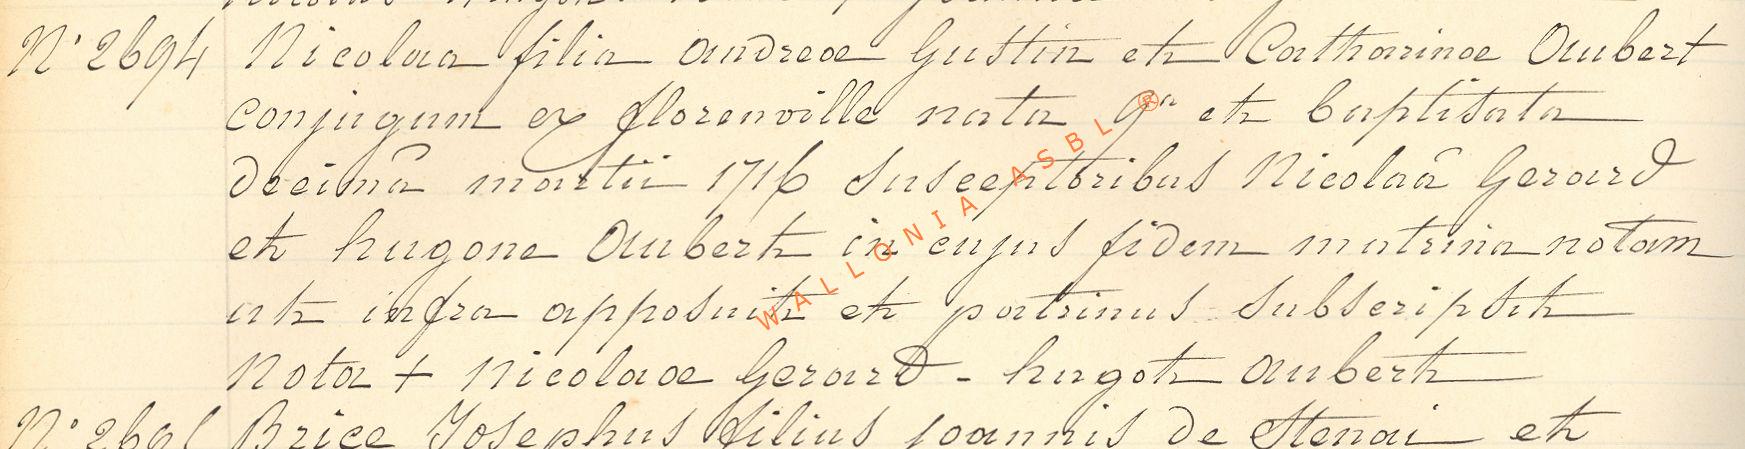 N° 2694 Nicolaa filia andreae Gustin et Catharinae Aubert
conjugum ex florenville nata 9a et baptisata
decimâ martii 1716 Susceptoribus Nicolaâ Gerard
et hugone Aubert in cujus fidem matrina notam
ut infra apposuit et patrinus subscripsit
Nota + Nicolaae Gerard - hugot aubert
N° 269 Brice Josephus filius joannis de Stenai et
WALLONIA ASBL ®